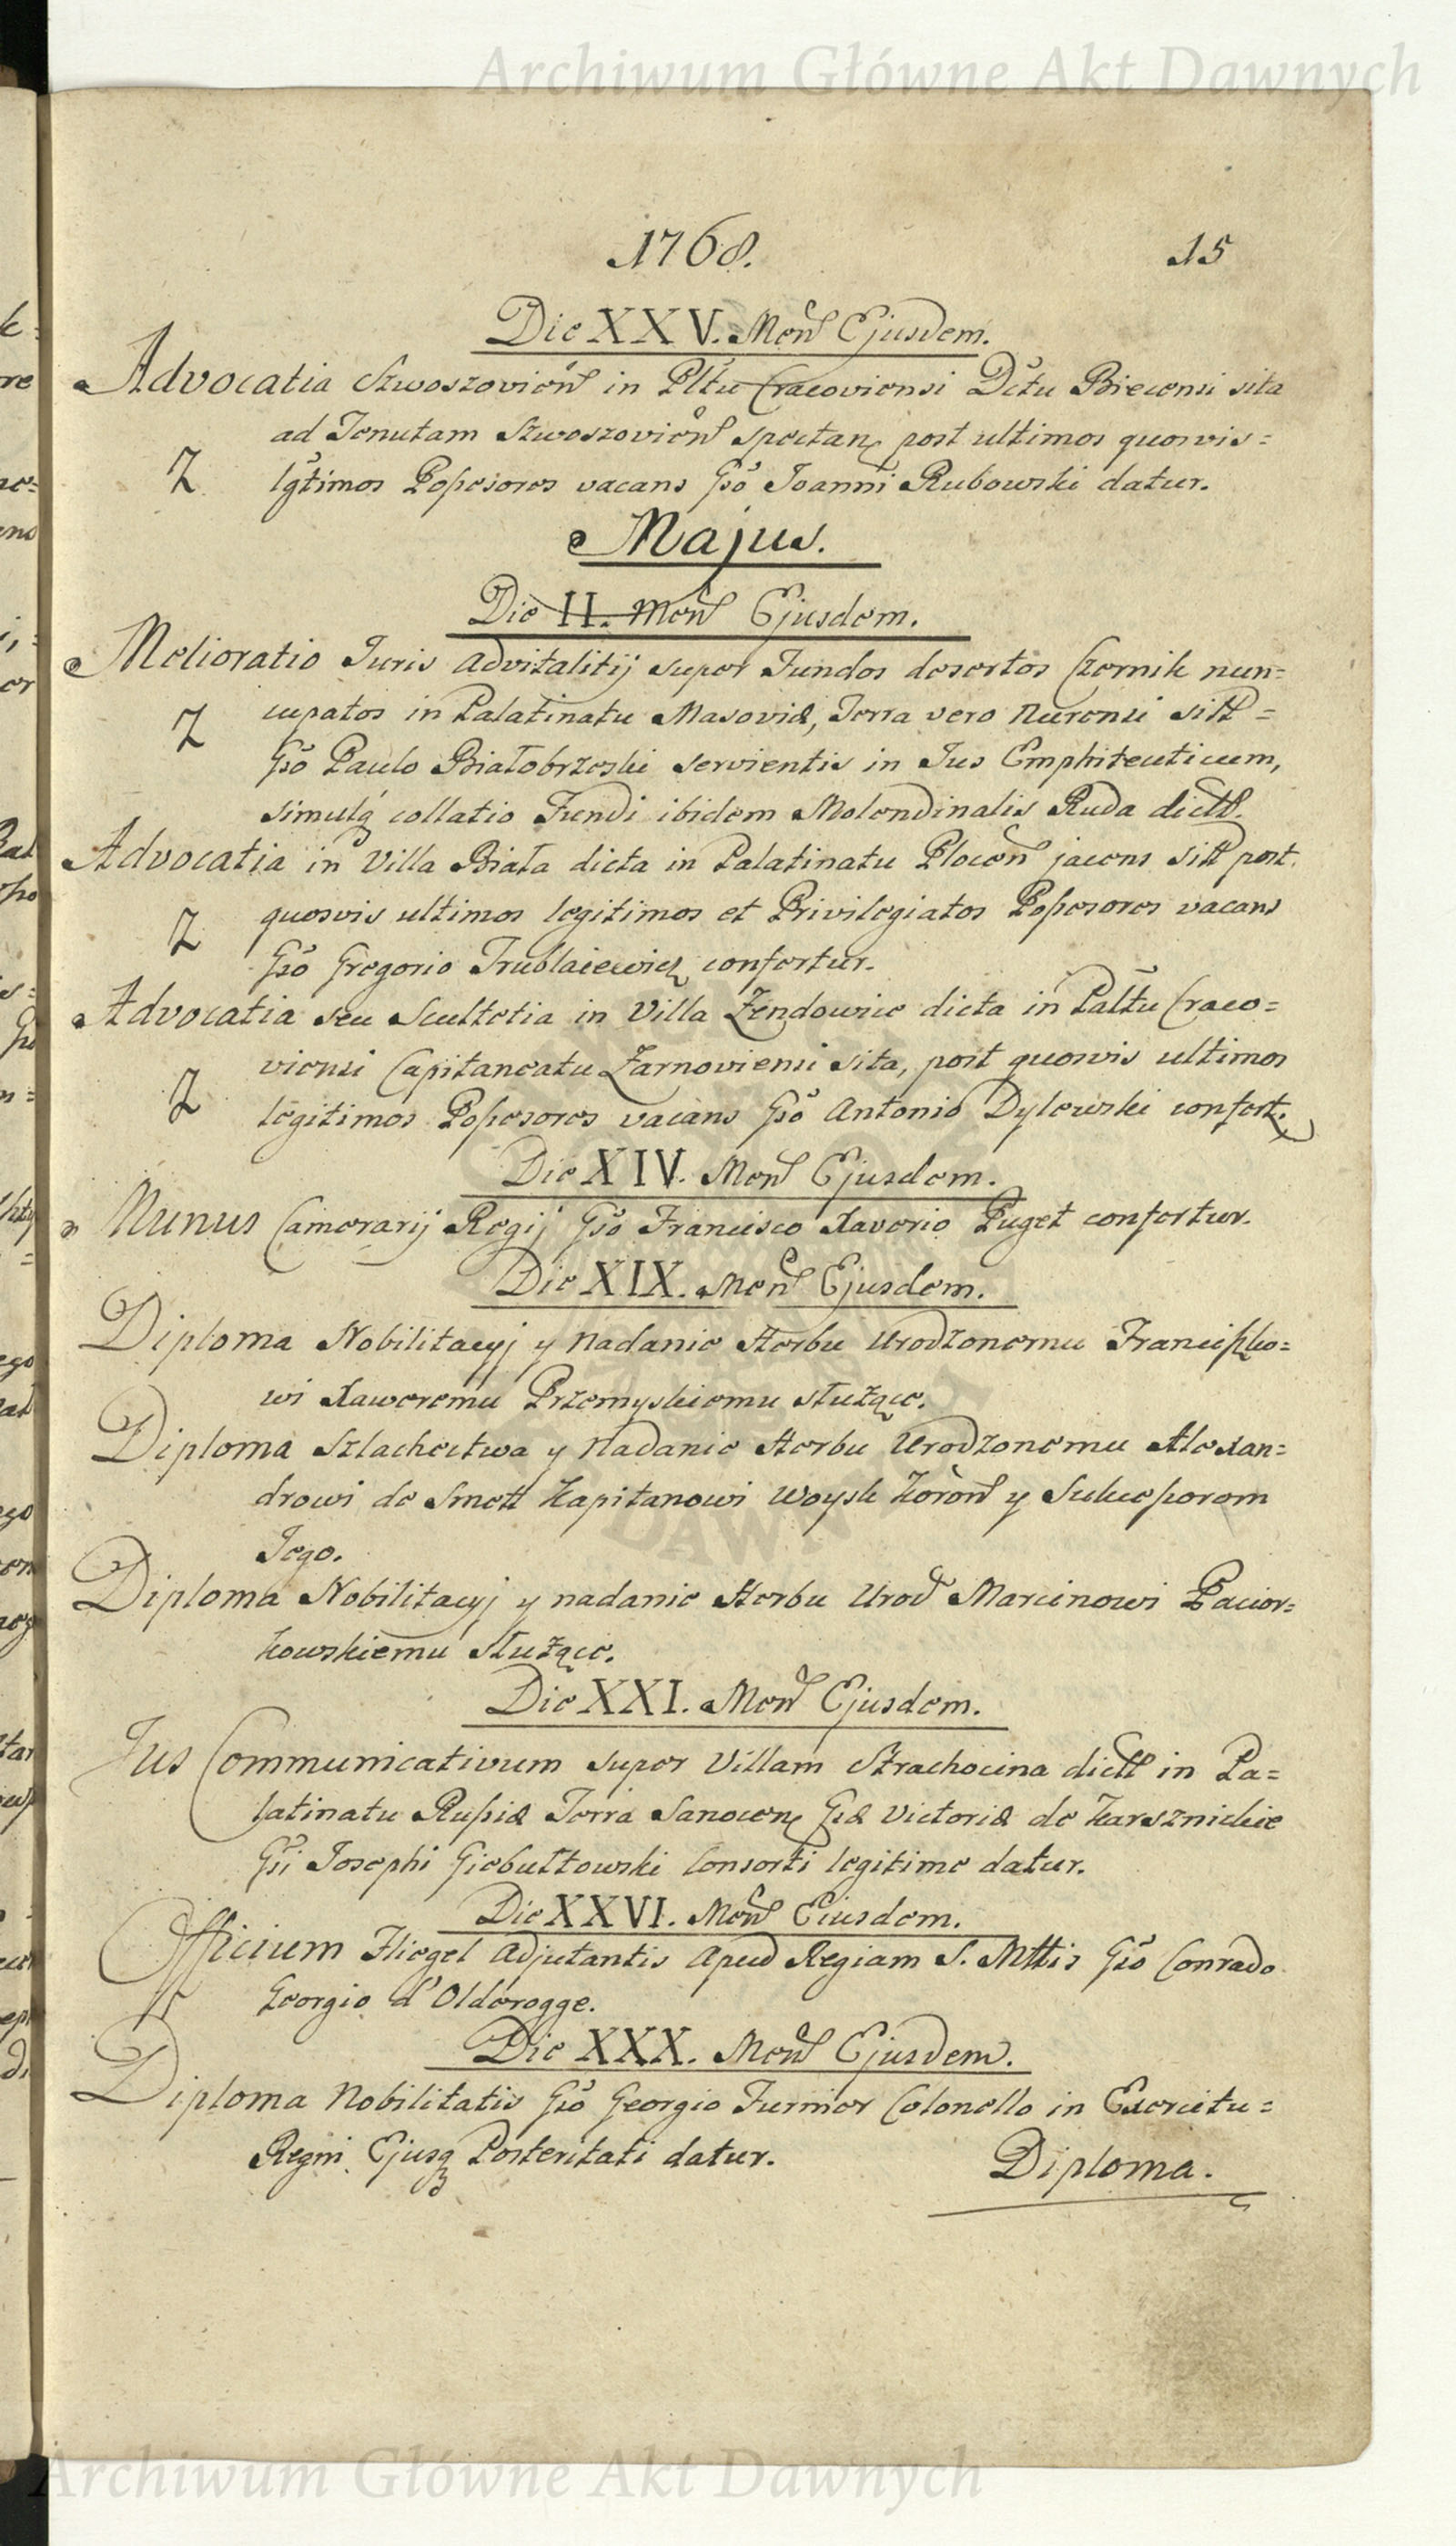 Archiwum Główne Akt Dawnych
1768.
15
Die XXV. Men Ejusdem.
Advocatia Szwoszovien in Pltu Cracoviensi Dctu Biecensi sita
ad Tenutam Szwoszovien spectan post ultimos quosvis=
Z lgtimos Possesores vacans Gso Joanni Rubowski datur.
Majus.
Die II. Men Ejusdem.
Melioratio Juris advitalitij super Fundos desertos Czernik nun=
Z cupatos in Palatinatu Masoviæ, Terra vero Nurensi sitt=
Gso Paulo Białobrzeski servientis in Jus Emphiteuticum,
simulq collatio Fundi ibidem Molendinalis Ruda dictt.
Advocatia in Villa Biała dicta in Palatinatu Plocen jacens sitt post.
Z quosvis ultimos legitimos et Privilegiatos Possesores vacans
Gso Gregorio Trublaiewicz confertur.
Advocatia seu Scultetia in Villa Zendowice dicta in Paltu Craco=
viensi Capitaneatu Zarnoviensi sita, post quosvis ultimos
Z legitimos Possesores vacans Gso Antonio Dylewski confert.
Die XIV. Men Ejusdem.
Munus Camerarij Regij Gso Francisco Xaverio Puget confertur.
Die XIX. Men Ejusdem.
Diploma Nobilitacyj y nadanie Herbu Urodzonemu Franciszko=
wi Xaweremu Przemyskiemu służące.
Diploma Szlachectwa y Nadanie Herbu Urodzonemu Alexan=
drowi de Smett Kapitanowi Woysk Koron y Sukcessorom
Jego.
Diploma Nobilitacyj y nadanie Herbu Urod Marcinowi Pacior=
kowskiemu służące.
Die XXI. Men Ejusdem.
Jus Communicativum super Villam Strachocina dictt in Pa=
latinatu Russiæ Terra Sanocen Gsæ Victoriæ de Karsznickie
Gsi Josephi Giebułtowski Consorti legitime datur.
Die XXVI. Men Eiusdem.
Officium Fliegel Adjutantis Apud Regiam S. Mttis Gso Conrado
Georgio d'Olderogge.
Die XXX. Men Ejusdem.
Diploma Nobilitatis Gso Georgio Furnier Colonello in Exercitu=
Regni Ejusq Posteritati datur.
Diploma.
Archiwum Główne Akt Dawnych